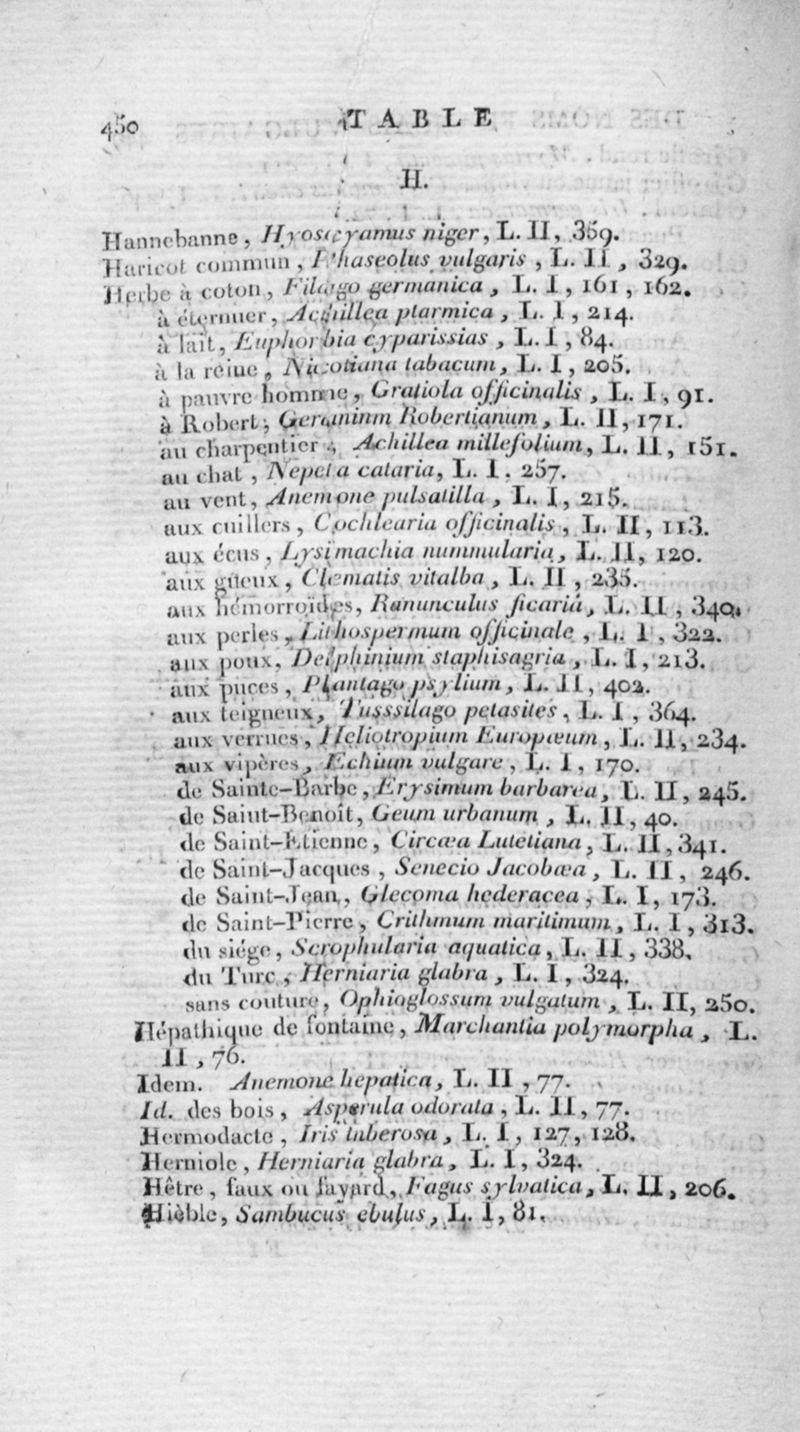 450 TABLE
H.
Hannebanne, Hyoscyamus niger, L. II, 359.
Haricot commun, Phaseolus vulgaris, L. II, 329.
Herbe à coton, Filago germanica, L. I, 161, 162.
à éternuer, Achillea ptarmica, L. I, 214.
à lait, Euphorbia cyparissias, L. I, 84.
à la reine, Nicotiana tabacum, L. I, 205.
à pauvre homme, Gratiola officinalis, L. I, 91.
à Robert, Geraninm Robertianum, L. II, 171.
au charpentier, Achillea millefolium, L. II, 151.
au chat, Nepeta cataria, L. I. 257.
au vent, Anemone pulsatilla, L. I, 215.
aux cuillers, Cochlearia officinalis, L. II, 113.
aux écus, Lysimachia nummularia, L. II, 120.
aux gueux, Clematis vitalba, L. II, 235.
aux hémorroïdes, Ranunculus ficaria, L. II, 340.
aux perles, Lithospermum officinale, L. I, 322.
aux poux, Delphinium staphisagria, L. I, 213.
aux puces, Plantago psylium, L. II, 402.
aux teigneux, Tusssilago petasites, L. I, 364.
aux verrues, Heliotropium Europæum, L. II, 234.
aux vipères, Echium vulgare, L. I, 170.
de Sainte-Barbe, Erysimum barbarea, L. II, 245.
de Saint-Benoît, Geum urbanum, L. II, 40.
de Saint-Etienne, Circæa Lutetiana, L. II, 341.
de Saint-Jacques, Senecio Jacobæa, L. II, 246.
de Saint-Jean, Glecoma hederacea, L. I, 173.
de Saint-Pierre, Crithmum maritimum, L. I, 313.
du siége, Scrophularia aquatica, L. II, 338.
du Turc, Herniaria glabra, L. I, 324.
sans couture, Ophioglossum vulgatum, L. II, 250.
Hépathique de fontaine, Marchantia polymorpha, L.
II, 76.
Idem. Anemone hepatica, L. II, 77.
Id. des bois, Asperula odorata, L. II, 77.
Hermodacte, Iris tuberosa, L. I, 127, 128.
Herniole, Herniaria glabra, L. I, 324.
Hêtre, faux ou fayard, Fagus sylvatica, L. II, 206.
Hièble, Sambucus ebulus, L. I, 81.